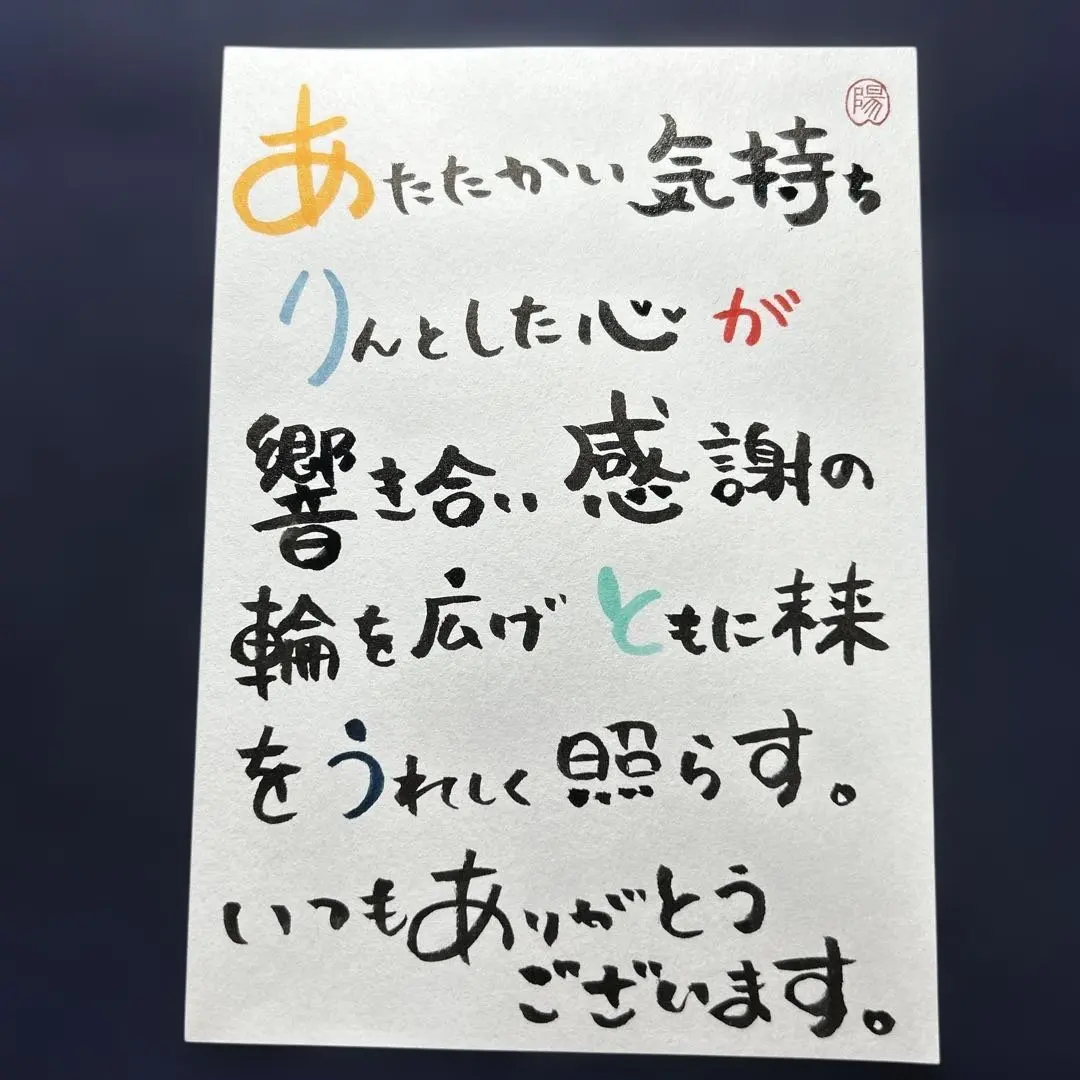 陽
あたたかい気持ち
りんとした心が
響き合い感謝の
輪を広げともに未来
をうれしく照らす。
いつもありがとう
ございます。